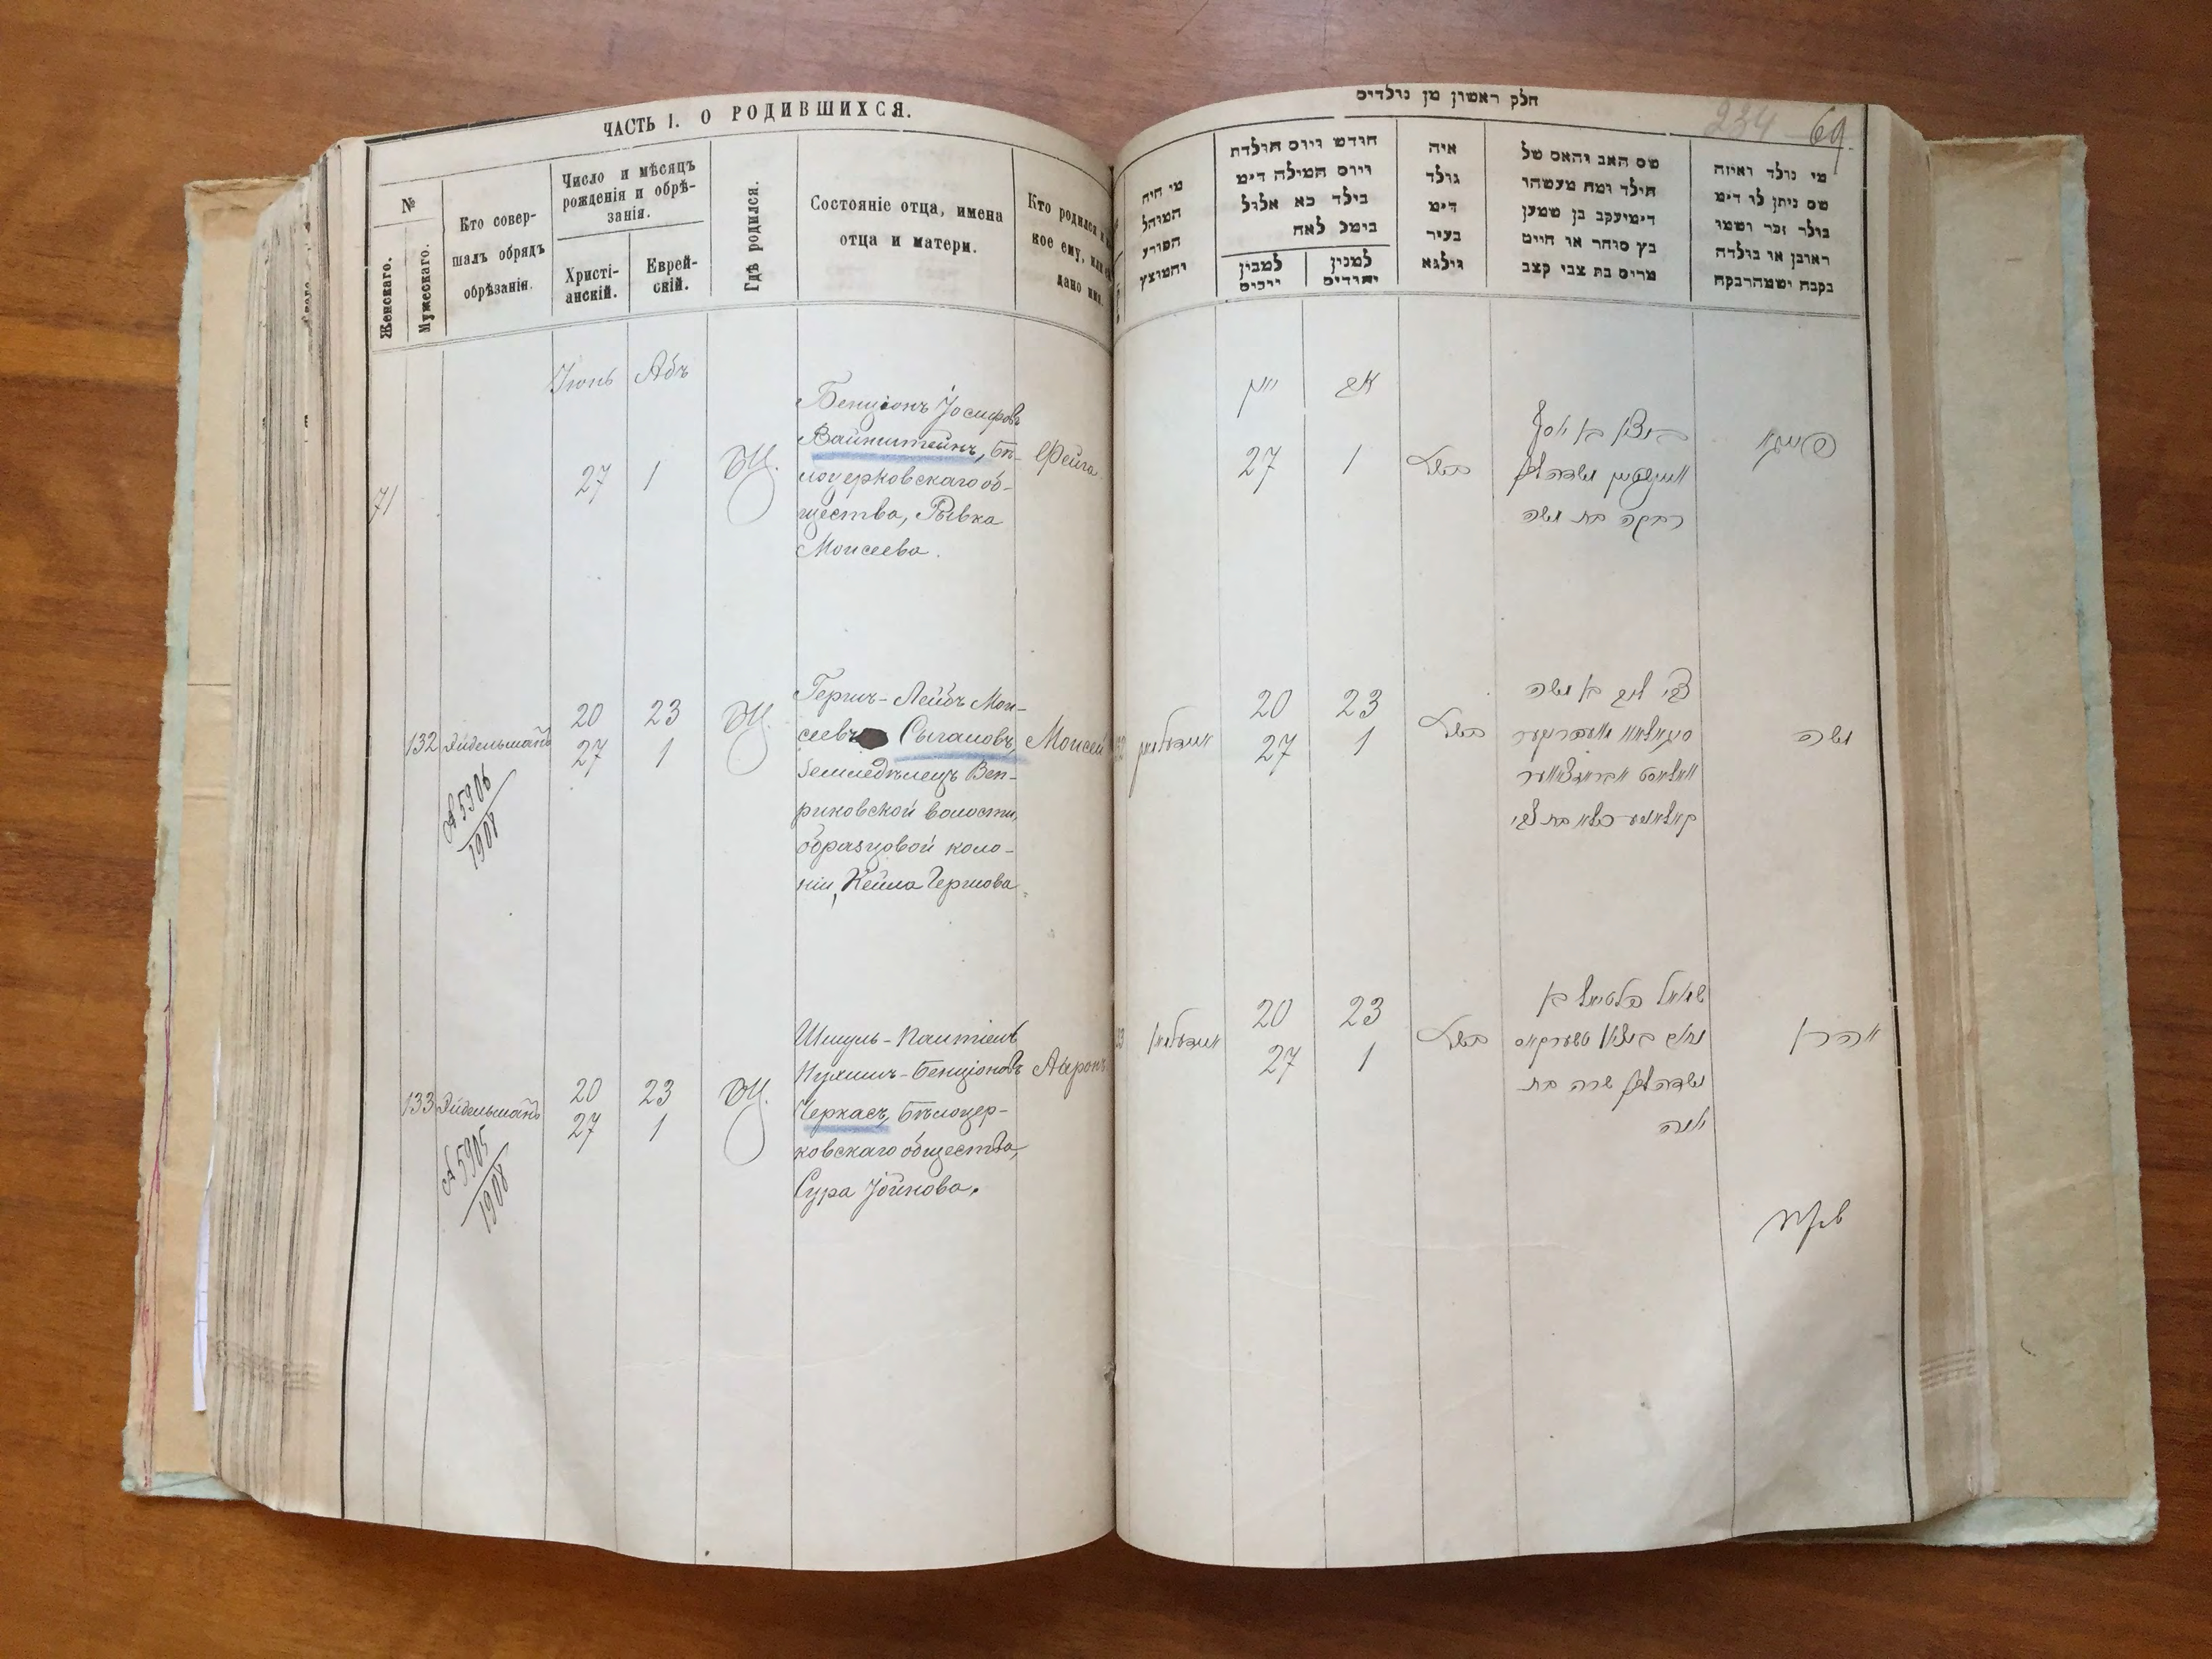 ЧАСТЬ I. О РОДИВШИХСЯ.
№
Женскаго.
Мужескаго.
Кто совер-
шалъ обрядъ
обрѣзанія.
Число и мѣсяцъ
рожденія и обрѣ-
занія.
Христі-
анскій.
Еврей-
скій.
Гдѣ родился.
Состояніе отца, имена
отца и матери.
Кто родился и
кое ему,
дано имя.
Іюнь Абъ
71
27 1
Бенціонъ Іосифовъ
Вайнштейнъ, Бѣ-
лоцерковскаго об-
щества, Рывка
Моисеева.
Фейга
132 Эйдельманъ
А 5906
1908
20 23
27 1
Гершъ-Лейбъ Мои-
сеевъ Сыгаловъ,
земледѣлецъ Веп-
риковской волости,
образцовой коло-
ніи, Кейла Гершова
Моисей
133 Эйдельманъ
А 5905
1908
20 23
27 1
Шмуль-Палтіель
Нухимъ-Бенціоновъ
Черкасъ, Бѣлоцер-
ковскаго общества,
Сура Іойнова.
Аыронъ
חלק ראשון מן נולדים
234 69.
מי היה
המוהל
הפורע
והמוצץ
חודש ויום הולדת
ויום המילה דימ
בילד כא אלול
בימל לאח
למנין
יהודים
למנין
איה
נולד
דימ
בעיר
ווילנא
שם האב והאם של
הילד ומה מעשהו
דימיעקב בן שמען
כץ סוחר או חייט
מרים בת צבי קצב
מי נולד ואיזה
שם ניתן לו דימ
נולד זכר ושמו
ראובן או נולדה
נקבה ושמה רבקה
יוני אב
27 1
בנציון בן יוסף
רבקה בת משה
פייגא
20 23
27 1
איידעלמאן
צבי ליב בן משה
משה
20 23
27 1
איידעלמאן
שמואל פלטיאל בן
נחום בנציון טשערקאס
שרה בת
יונה
אהרן